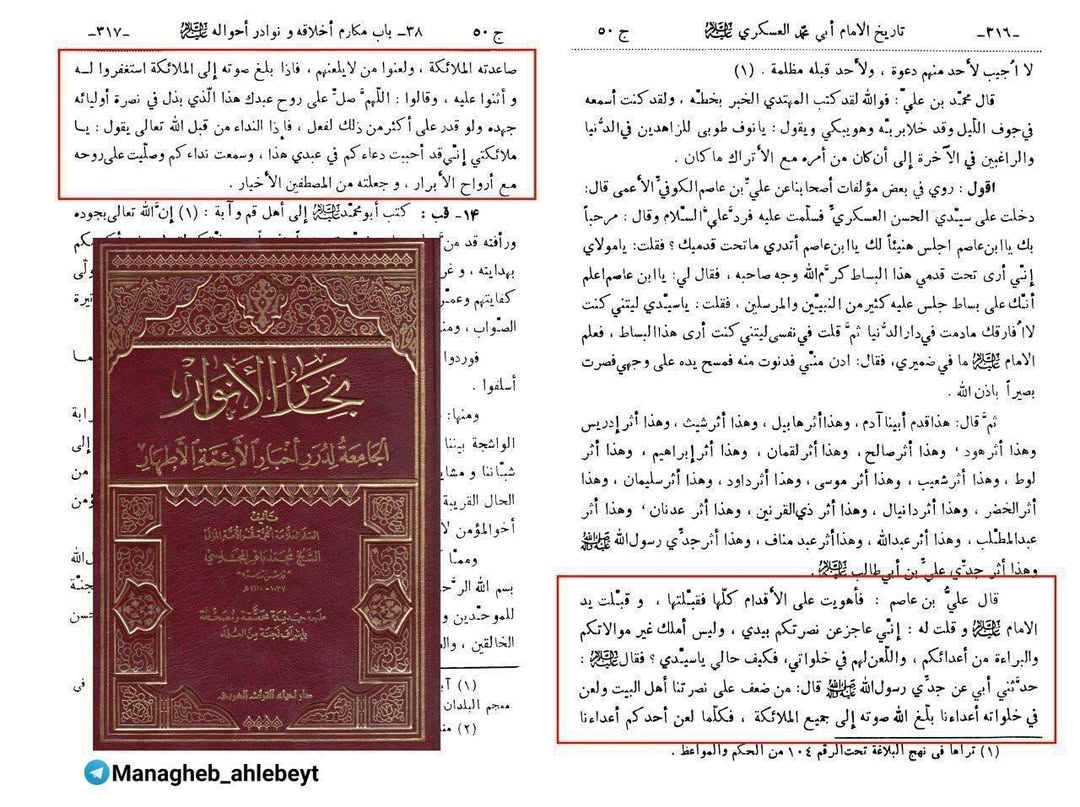 -٣١٦- تاريخ الامام أبي محمّد العسكري عليه السلام ج ٥٠
لا اُجيب لأحد منهم دعوة ، ولأحد قبله مظلمة . (١)
قال محمّد بن عليّ : فوالله لقد كتب المهتدي الخبر بخطّه ، ولقد كنت أسمعه
في جوف اللّيل وقد خلابربّه وهويبكي ويقول : يانوف طوبى للزاهدين في الدُّنيا
والراغبين في الآخرة إلى أن كان من أمره مع الأتراك ما كان .
اقول : روي في بعض مؤلفات أصحابنا عن عليِّ بن عاصم الكوفيِّ الأعمى قال:
دخلت على سيّدي الحسن العسكريِّ فسلّمت عليه فردَّ عليَّ السّلام وقال : مرحباً
بك يا ابن عاصم اجلس هنيئاً لك يا ابن عاصم أتدري ما تحت قدميك ؟ فقلت: يامولاي
إنّي أرى تحت قدمي هذا البساط كرَّم الله وجه صاحبه ، فقال لي : يا ابن عاصم اعلم
أنّك على بساط جلس عليه كثير من النبيّين والمرسلين ، فقلت : ياسيّدي ليتني كنت
لا اُفارقك مادمت في دار الدُّنيا ثمَّ قلت في نفسي ليتني كنت أرى هذا البساط ، فعلم
الامام عليه السلام ما في ضميري، فقال: ادن منّي فدنوت منه فمسح يده على وجهي فصرت
بصيراً باذن الله .
ثمَّ قال : هذا قدم أبينا آدم ، وهذا أثر هابيل ، وهذا أثر شيث ، وهذا أثر إدريس
وهذا أثر هود ، وهذا أثر صالح ، وهذا أثر لقمان ، وهذا أثر إبراهيم ، وهذا أثر
لوط ، وهذا أثر شعيب ، وهذا أثر موسى ، وهذا أثر داود ، وهذا أثر سليمان ، وهذا
أثر الخضر ، وهذا أثر دانيال ، وهذا أثر ذي القرنين ، وهذا أثر عدنان ، وهذا أثر
عبدالمطّلب ، وهذا أثر عبدالله ، وهذا أثر عبد مناف ، وهذا أثر جدّي رسول الله صلى الله عليه وآله
وهذا أثر جدّي عليِّ بن أبي طالب عليه السلام .
قال عليُّ بن عاصم : فأهويت على الأقدام كلّها فقبّلتها ، و قبّلت يد
الامام عليه السلام و قلت له : إنّي عاجز عن نصرتكم بيدي ، وليس أملك غير موالاتكم
والبراءة من أعدائكم ، واللّعن لهم في خلواتي، فكيف حالي ياسيّدي ؟ فقال عليه السلام :
حدَّثني أبي عن جدّي رسول الله صلى الله عليه وآله قال: من ضعف على نصرتنا أهل البيت ولعن
في خلواته أعداءنا بلّغ الله صوته إلى جميع الملائكة ، فكلّما لعن أحدكم أعداءنا
(١) تراها فى نهج البلاغة تحت الرقم ١٠٤ من الحكم والمواعظ .
ج ٥٠ ٣٨- باب مكارم أخلاقه و نوادر أحواله عليه السلام -٣١٧-
صاعدته الملائكة ، ولعنوا من لا يلعنهم ، فاذا بلغ صوته إلى الملائكة استغفروا لـه
و أثنوا عليه ، وقالوا : اللّهمَّ صلِّ على روح عبدك هذا الّذي بذل في نصرة أوليائه
جهده ولو قدر على أكثر من ذلك لفعل ، فإذا النداء من قبل الله تعالى يقول : يـا
ملائكتي إنّي قد أحببت دعاءكم في عبدي هذا ، وسمعت نداءكم وصلّيت على روحه
مع أرواح الأبرار ، و جعلته من المصطفين الأخيار .
١٤- قب : كتب أبو محمّد عليه السلام إلى أهل قم و آبة : (١) إنَّ الله تعالى بجوده
ورأفته قد منَّ
بهدايته ، و غر
كفايتهم وعمّر
الصّواب ، ومن
فوردوا
أسلفوا .
ومنها:
الواشجة بيننا
شبّاننا و مشاي
الحال القريبة
أخو المؤمن لا
وممّا
بسم الله الرّح
للموحّدين و
الخالقين ، وال
(١) آب
معجم البلدان
(٢) من
بحار الأنوار
الجامعة لدرر أخبار الأئمة الأطهار
تأليف
العلم العلامة الحجة فخر الأمة المولى
الشيخ محمد باقر المجلسي
"قدس الله سره"
١٠٣٧-١١١٠ هـ
طبعة جديدة محققة ومصححة
بإشراف لجنة من العلماء
دار إحياء التراث العربي
Managheb_ahlebeyt